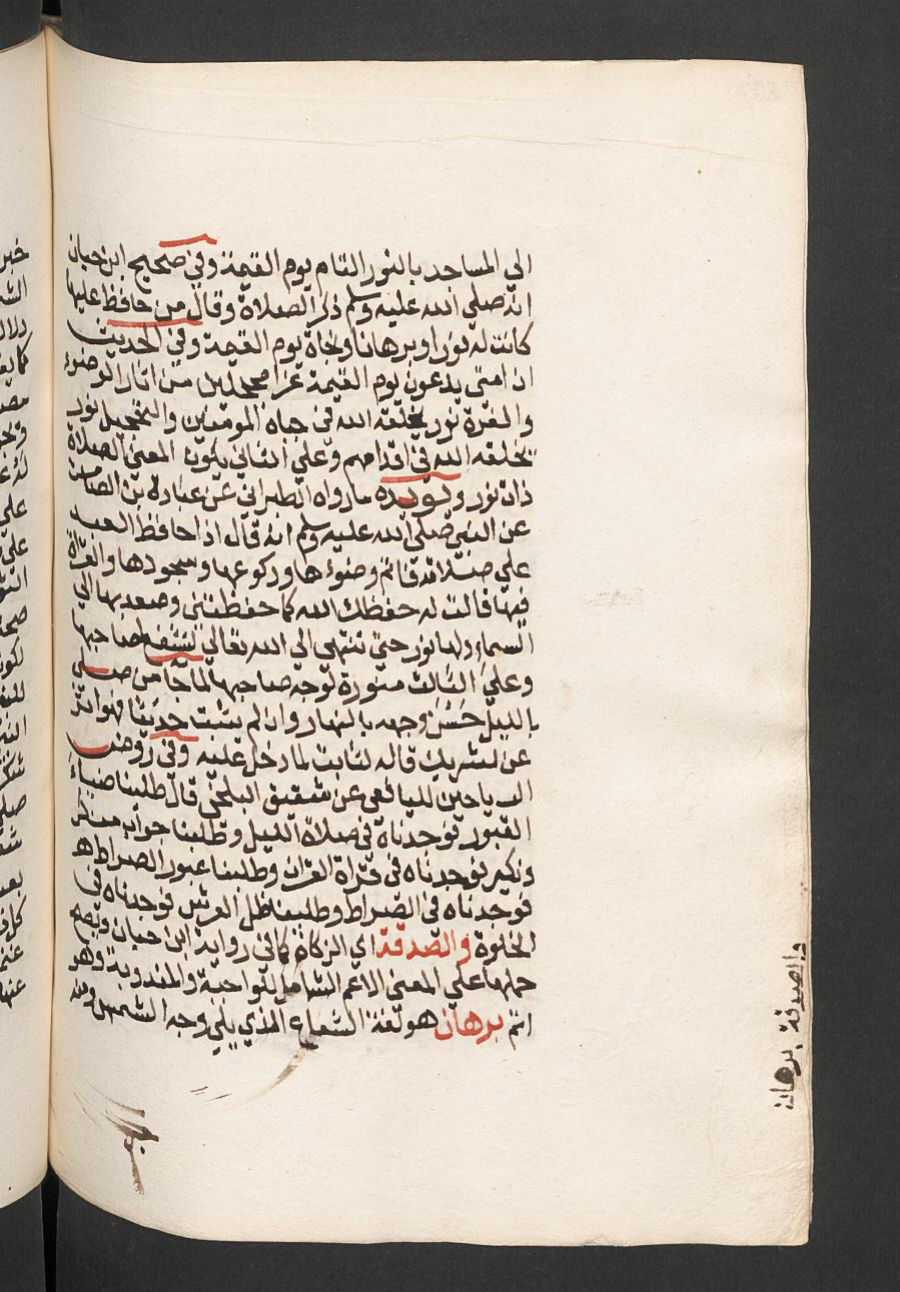 الي المساجد بالنور التام يوم القيمة وفي صحيح ابن حبان
انه صلي الله عليه وسلم ذكر الصلاة وقال من حافظ عليها
كانت له نورا وبرهانا ونجاة يوم القيمة وفي الحديث
ان امتي يدعون يوم القيمة غرا محجلين من اثار الوضوء
والغرة نور يخلقه الله في جباه المومنين والتحجيل نور
يخلقه الله في اقدامهم وعلي الثاني يكون المعني الصلاة
ذات نور ويويده ما رواه الطبراني عن عبادة بن الصامت
عن النبي صلي الله عليه وسلم انه قال اذا حافظ العبد
علي صلاته فاتم وضوءها وركوعها وسجودها والقراة
فيها قالت له حفظك الله كما حفظتني وصعد بها الي
السماء ولها نور حتي تنتهي الي الله تعالي لتشفع لصاحبها
وعلي الثالث منورة لوجه صاحبها لما جا من صلي
بالليل حسن وجهه بالنهار وان لم يثبت حديثا فهو اثر
عن لشريك قاله لثابت لما دخل عليه وفي روض
الرياحين لليافعي عن شقيق البلخي قال طلبنا ضياء
القبور فوجدناه في صلاة الليل وطلبنا جواب منكر
ونكير فوجدناه في قراة القران وطلبنا عبور الصراط
فوجدناه في الصراط وطلبنا ظل العرش فوجدناه في
الخلوة والصدقة اي الزكاة كما في رواية ابن حبان ويصح
حملها علي المعني الاعم الشامل للواجبة والمندوبة وهو
اتم برهان هو لغة الشعاع الذي يلي وجه الشمس ومنه
والصدقة برهان